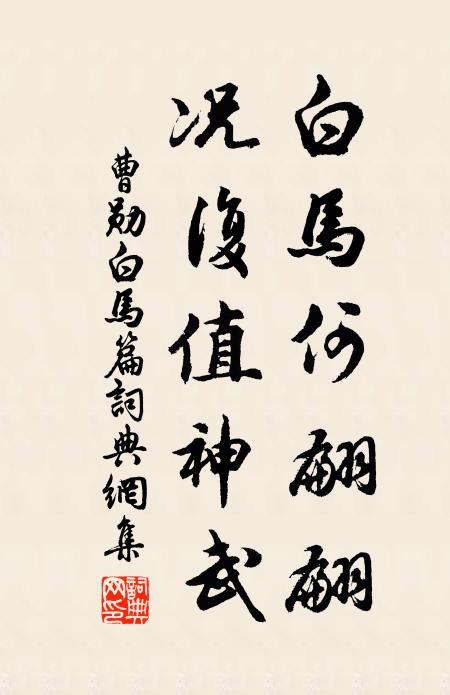 白馬何翩翩
况復值神武
曹勛白馬篇詞典網集
詞典網印